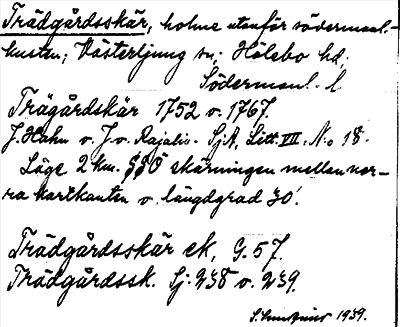 Trädgårdsskär, holme utanför södermanl.-
kusten; Västerljung sn; Hölebo hd;
Södermanl. l.
Trägårdskär 1752 o. 1767.
J. Hahn o. J. v. Rajalin. SjA, Litt. VII. No 18.
Läge 2 km. SSO skärningen mellan nor-
ra kartkanten o. längdgrad 30'.
Trädgårdsskär ek, G. 57.
Trädgårdssk. Sj. 238 o. 239.
S. 1939.